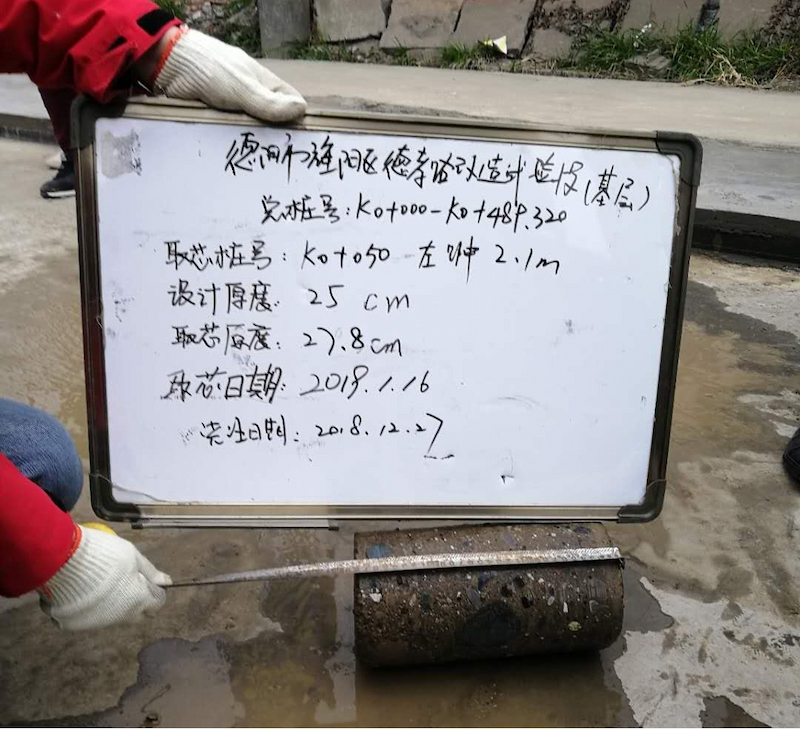 德阳市旌阳区德孝路改造计监段(基层)
总桩号:K0+000-K0+489.320
取芯桩号:K0+050 左冲 2.1m
设计厚度: 25 cm
取芯厚度:27.8cm
取芯日期:2019.1.16
浇注日期:2018.12.27